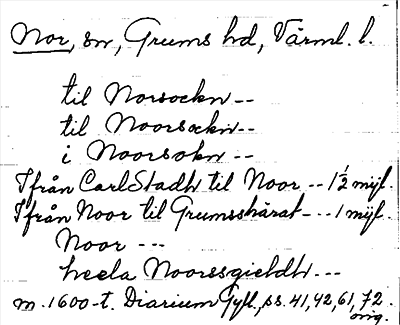 Nor, sn, Grums hd, Värml. l.
til Norsockn --
til Noorsockn --
i Noorsokn --
Ifrån CarlStadh til Noor -- 1½ mijl.
Ifrån Noor til Grumsshärat -- 1 mijl.
Noor ---
heela Noorssgieldh ---
m. 1600-t. Diarium Gyll., ss. 41, 42, 61, 72.
orig.